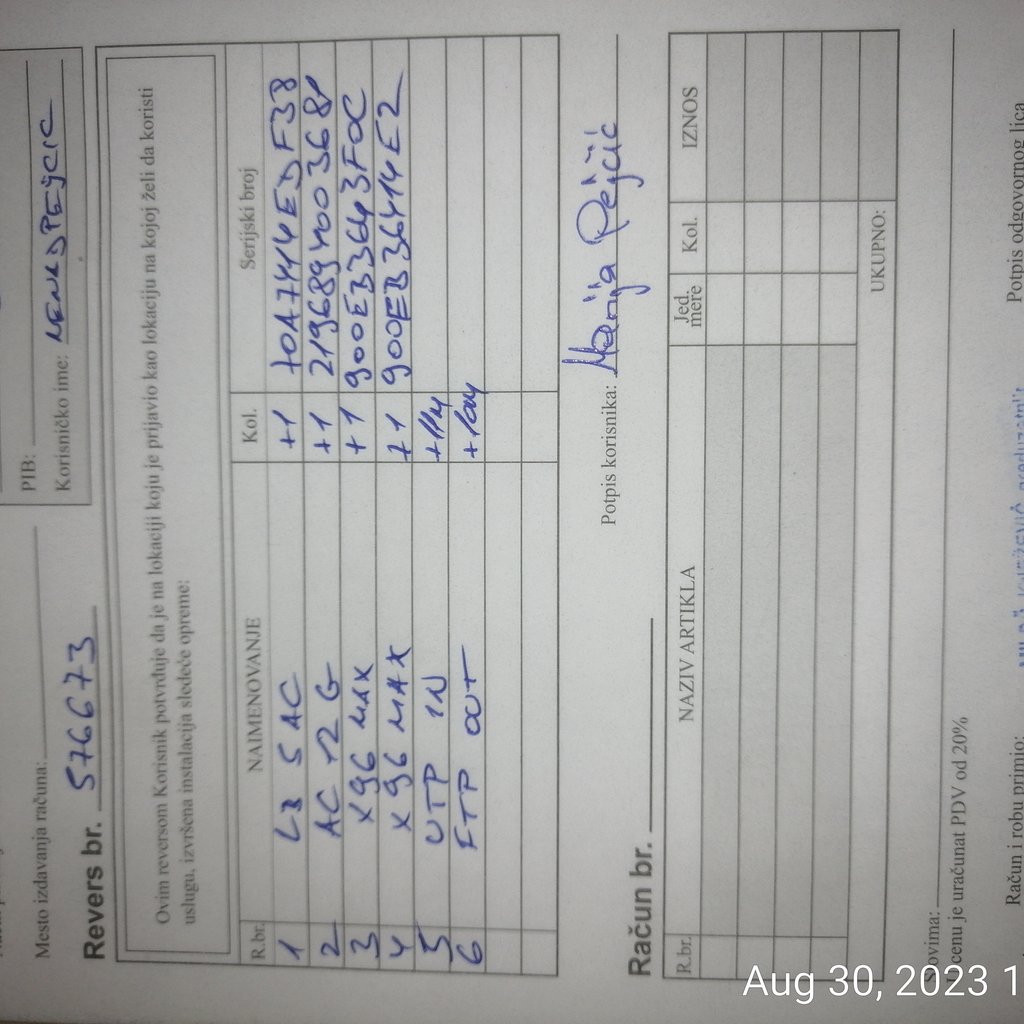 PIB:
Korisničko ime: NENAD PEJČIĆ
Mesto izdavanja računa:
Revers br. 576673
Ovim reversom Korisnik potvrđuje da je na lokaciji koju je prijavio kao lokaciju na kojoj želi da koristi
uslugu, izvršena instalacija sledeće opreme:
R.br. NAIMENOVANJE Kol. Serijski broj
1 LB 5 AC +1
2 AC 12 G +1
3 X96 MAX +1 900EB3643F0C
4 X96 MAX +1 900EB36414E2
5 UTP IN +11M
6 FTP OUT +10M
Potpis korisnika: Marija Pejčić
Račun br.
R.br. NAZIV ARTIKLA Jed. mere Kol. IZNOS
UKUPNO:
U cenu je uračunat PDV od 20%
Račun i robu primio:
Potpis odgovornog lica
Aug 30, 2023 1